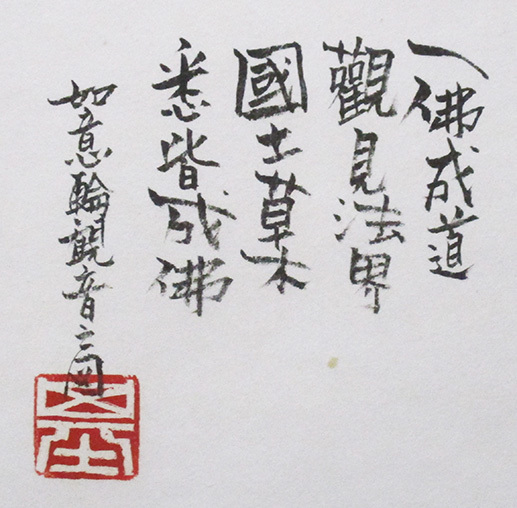 一佛成道
觀見法界
國土草木
悉皆成佛
如意輪觀音之図